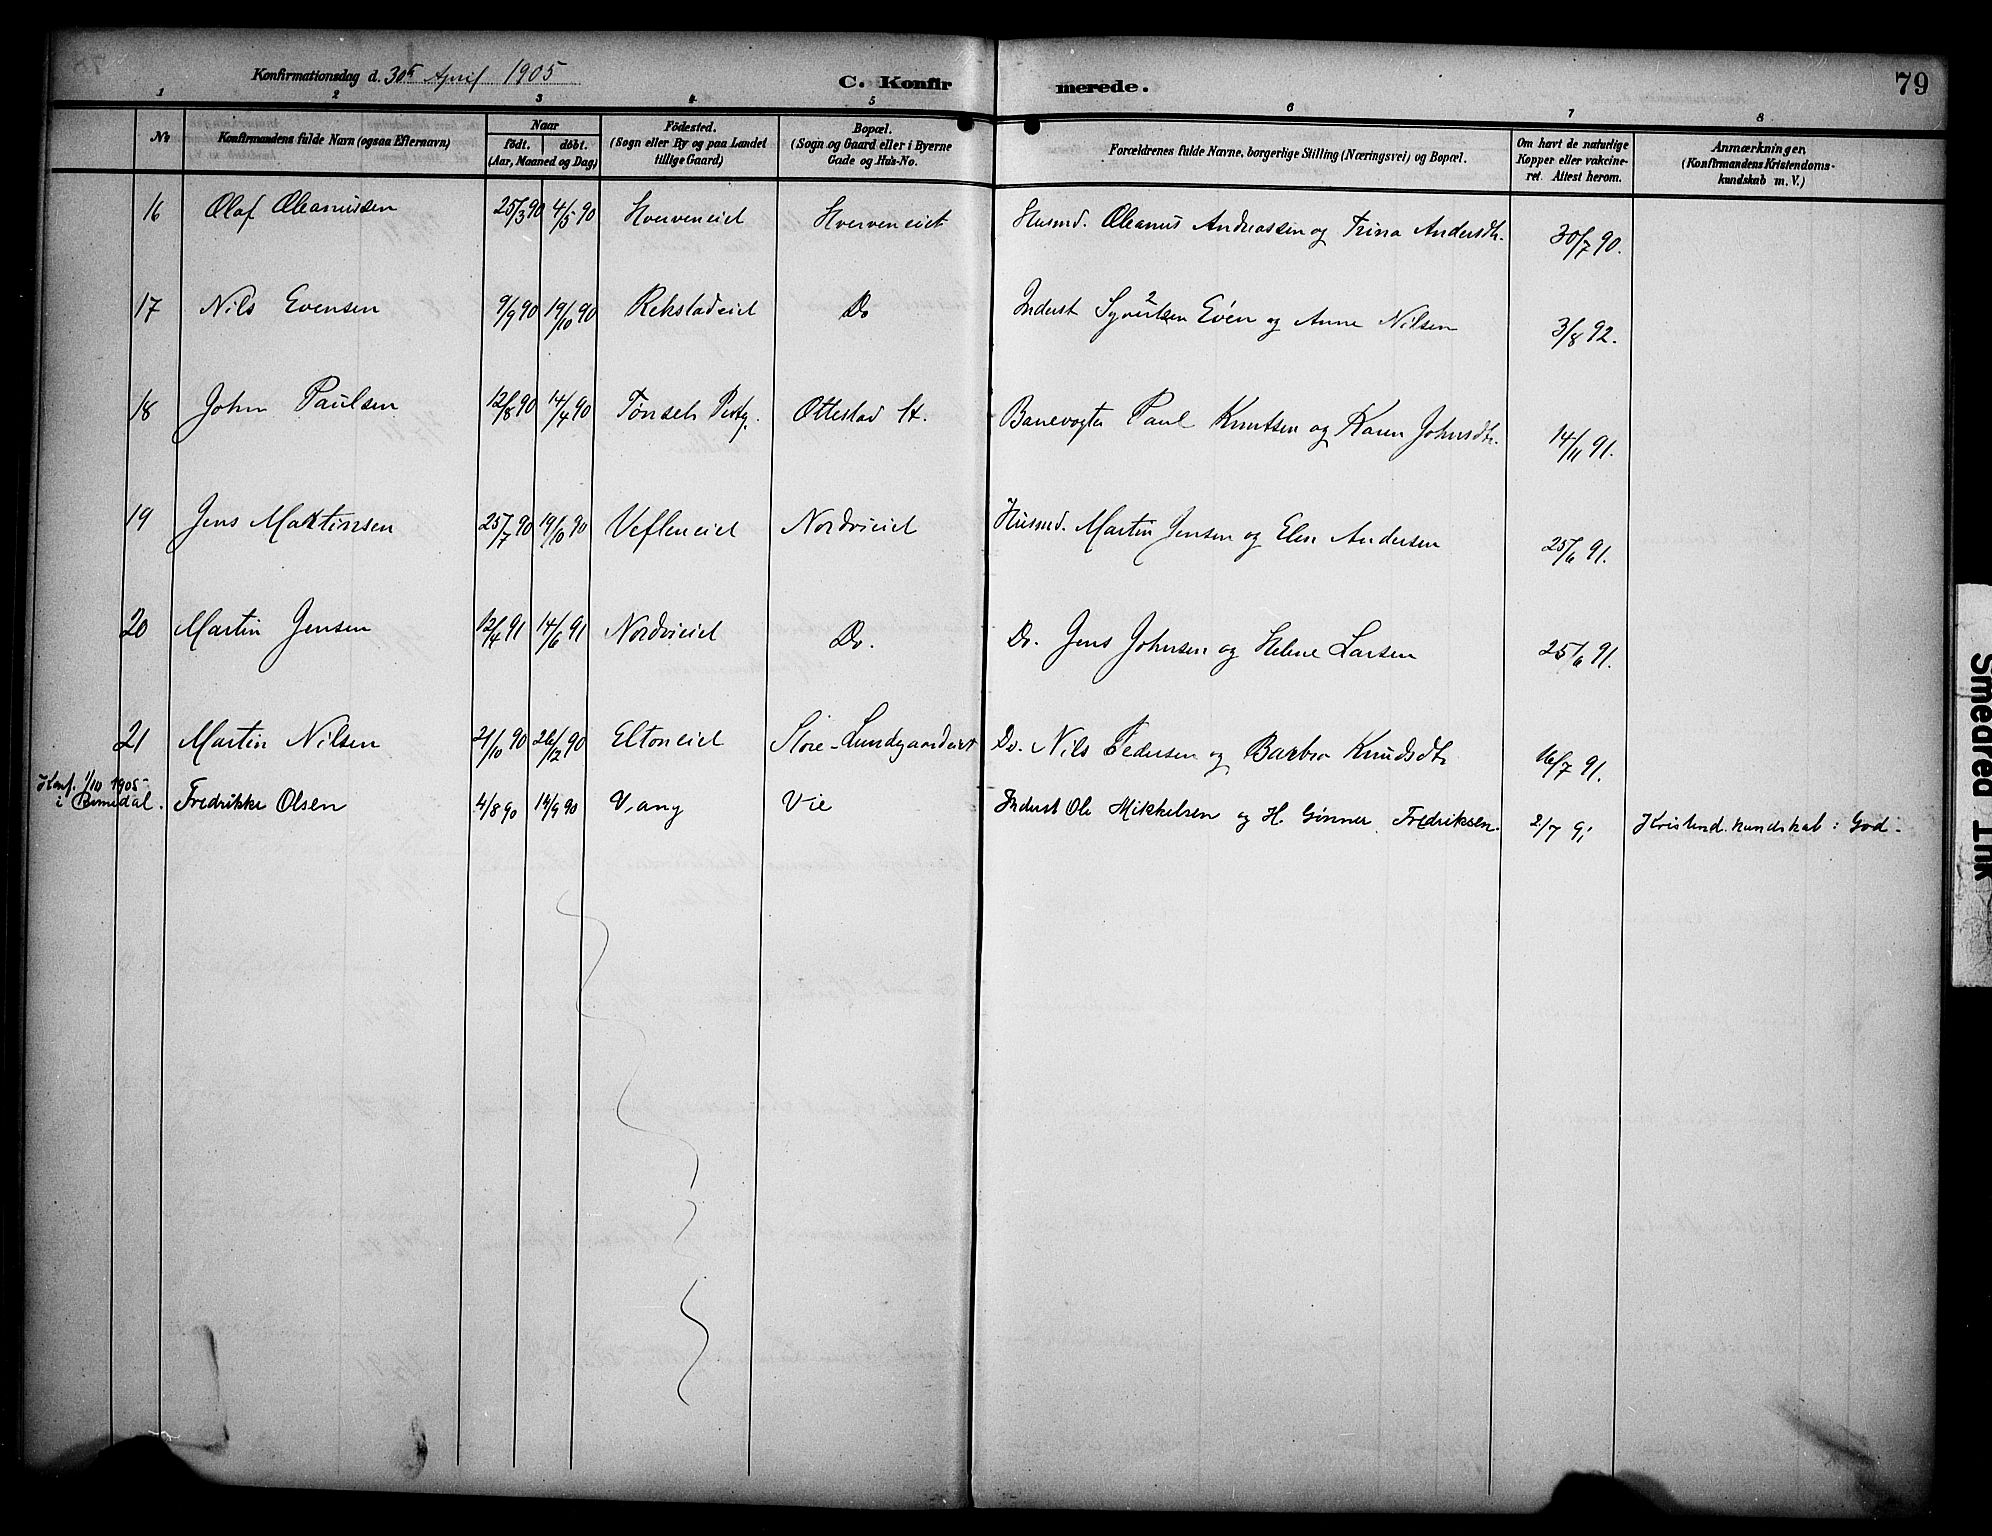 Konfirmationsdag d. 30te April 1905
C. Konfirmerede.
79
1 2 3 4 5 6 7 8
No
Konfirmandens fulde Navn (ogsaa Efternavn)
Naar
født. døbt.
(Aar, Maaned og Dag)
Fødested.
(Sogn eller By og paa Landet
tillige Gaard)
Bopæl.
(Sogn og Gaard eller i Byerne
Gade og Hus-No.
Forældrenes fulde Navne, borgerlige Stilling (Næringsvei) og Bopæl.
Om havt de naturlige
Kopper eller vakcine-
ret. Attest herom.
Anmærkninger
(Konfirmandens Kristendoms-
kundskab m. V.)
16 Olaf Oleanussen 25/3 90 4/5 90 Hverveneiet Hverveneiet Husmd. Oleanus Andreassen og Trina Andersdt. 30/7 90.
17 Nils Evensen 9/9 90 19/10 90 Rekstadeiet Do Inderst Syvertsen Even og Anne Nilsen 3/8 92.
18 John Paulsen 12/8 90 14/4 90 Tønsets Prstg. Ottestad St. Banevogter Paul Knutsen og Karen Johnsdt. 14/11 91.
19 Jens Martinsen 25/7 90 19/10 90 Vefleneiet Nordvieiet Husmd. Martin Jensen og Elen Andersen 25/6 91.
20 Martin Jensen 12/4 91 14/6 91 Nordvieiet Do. Do. Jens Johnsen og Helene Larsen 25/6 91.
21 Martin Nilsen 21/10 90 26/12 90 Eltoneiet Store-Lundgaardeiet Do. Nils Pedersen og Barbro Knudsdt. 16/7 91.
Konf. 1/10 1905
i Romedal. Fredrikke Olsen 4/8 90 14/9 90 Vang Vie Inderst Ole Mikkelsen og H. Gunner Fredriksen. 2/7 91 Kristend.kundskab: God.
Smeared Ink